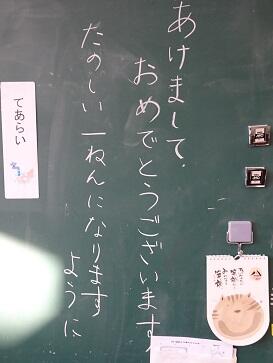 あけまして、
おめでとうございます
たのしい一ねんになります
ように
てあらい